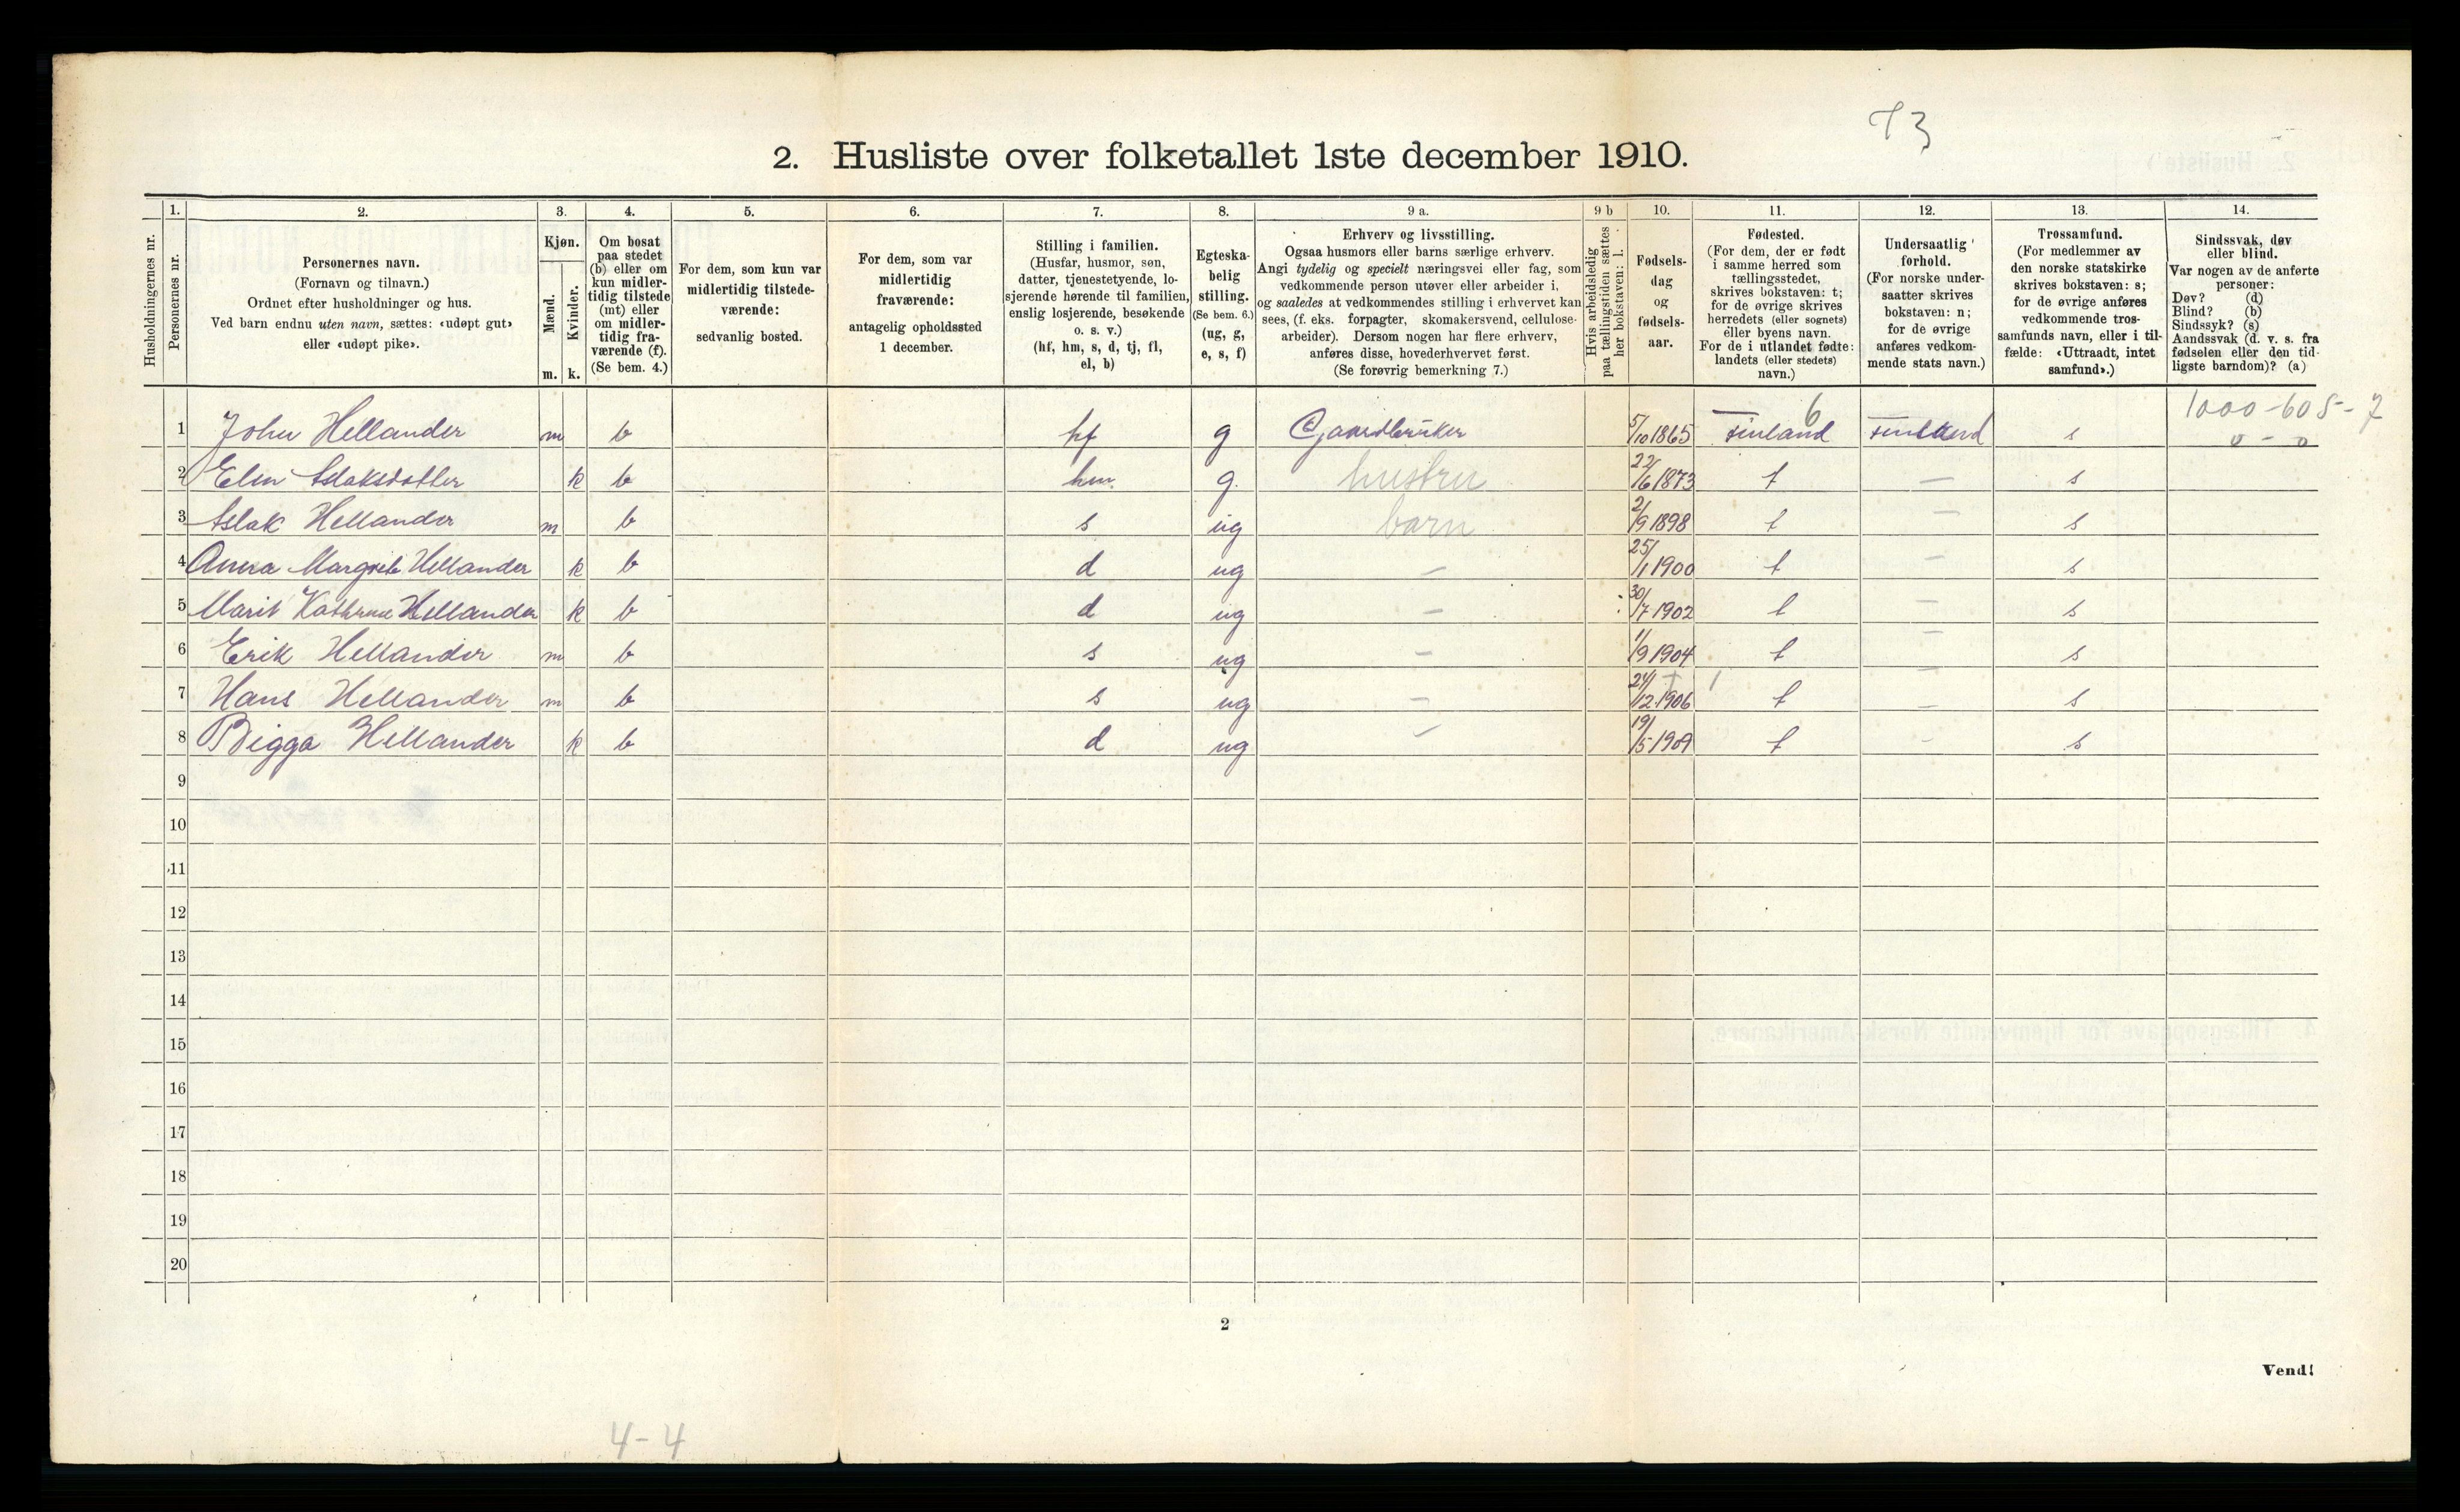 73
2. Husliste over folketallet 1ste december 1910.
Husholdningernes nr.
1.
Personernes nr.
2.
Personernes navn.
(Fornavn og tilnavn.)
Ordnet efter husholdninger og hus.
Ved barn endnu uten navn, sættes: «udøpt gut»
eller «udøpt pike».
3.
Kjøn.
Mænd.
Kvinder.
m. k.
4.
Om bosat
paa stedet
(b) eller om
kun midler-
tidig tilstede
(mt) eller
om midler-
tidig fra-
værende (f).
(Se bem. 4.)
5.
For dem, som kun var
midlertidig tilstede-
værende:
sedvanlig bosted.
6.
For dem, som var
midlertidig
fraværende:
antagelig opholdssted
1 december.
7.
Stilling i familien.
(Husfar, husmor, søn,
datter, tjenestetyende, lo-
sjerende hørende til familien,
enslig losjerende, besøkende
o. s. v.)
(hf, hm, s, d, tj, fl,
el, b)
8.
Egteska-
belig
stilling.
(Se bem. 6.)
(ug, g,
e, s, f)
9 a.
Erhverv og livsstilling.
Ogsaa husmors eller barns særlige erhverv.
Angi tydelig og specielt næringsvei eller fag, som
vedkommende person utøver eller arbeider i,
og saaledes at vedkommendes stilling i erhvervet kan
sees, (f. eks. forpagter, skomakersvend, cellulose-
arbeider). Dersom nogen har flere erhverv,
anføres disse, hovederhvervet først.
(Se forøvrig bemerkning 7.)
9 b
Hvis arbeidsledig
paa tællingstiden sættes
her bokstaven: l.
10.
Fødsels-
dag
og
fødsels-
aar.
11.
Fødested.
(For dem, der er født
i samme herred som
tællingsstedet,
skrives bokstaven: t;
for de øvrige skrives
herredets (eller sognets)
eller byens navn.
For de i utlandet fødte:
landets (eller stedets)
navn.)
12.
Undersaatlig
forhold.
(For norske under-
saatter skrives
bokstaven: n;
for de øvrige
anføres vedkom-
mende stats navn.)
13.
Trossamfund.
(For medlemmer av
den norske statskirke
skrives bokstaven: s;
for de øvrige anføres
vedkommende tros-
samfunds navn, eller i til-
fælde: «Uttraadt, intet
samfund».)
14.
Sindssvak, døv
eller blind.
Var nogen av de anførte
personer:
Døv? (d)
Blind? (b)
Sindssyk? (s)
Aandssvak (d. v. s. fra
fødselen eller den tid-
ligste barndom)? (a)
6 1000-605-7
1 John Hellander m b hf g Gaardbruker 5/10 1865 Finland Finland s 0 - 0
2 Elen Aslaksdatter k b hm. g. hustru 22/6 1873 t — s
3 Aslak Hellander m b s ug barn 2/9 1898 t — s
4 Anna Margrete Hellander k b d ug — 25/1 1900 t — s
5 Marit Kathrine Hellander k b d ug — 30/7 1902 t — s
6 Erik Hellander m b s ug — 1/9 1904 t — s
7 Hans Hellander m b s ug — 24/12 1906 t — s
8 Bigga Hellander k b d ug — 19/5 1909 t — s
9
10
11
12
13
14
15
16
17
18
19
20
2
Vend!
4-4